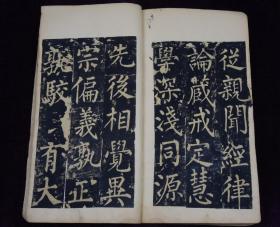 從親聞經律
論藏戒定慧
學深淺同源
先後相覺異
宗偏義孰正
孰駁有大